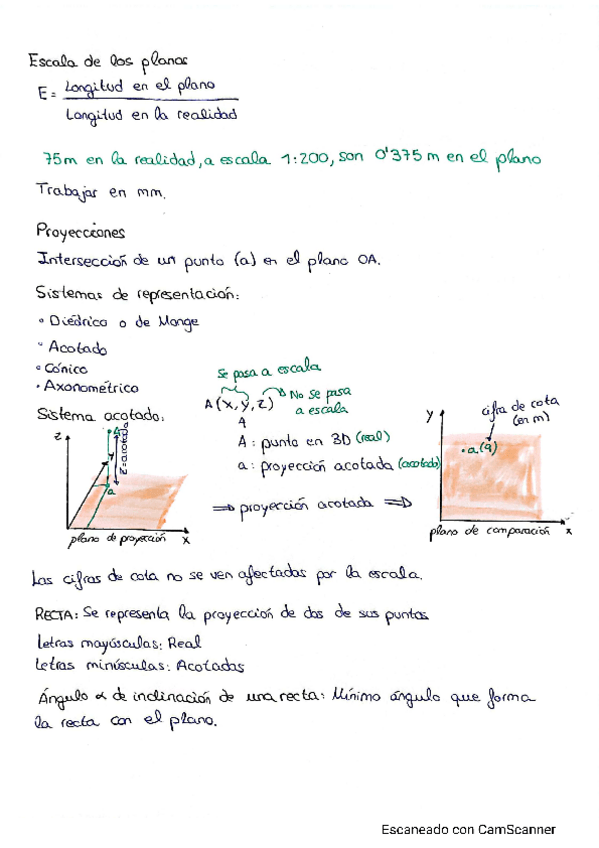 Escala de los planos
E = Longitud en el plano
Longitud en la realidad
75m en la realidad, a escala 1:200, son 0'375 m en el plano
Trabajar en mm.
Proyecciones
Intersección de un punto (a) en el plano OA.
Sistemas de representación:
• Diédrico o de Monge
• Acotado
• Cónico
• Axonométrico
Se pasa a escala
A(x, y, z)
No se pasa
a escala
A
Sistema acotado:
z
A
z=acotada
y
a
plano de proyección x
A: punto en 3D (real)
a: proyección acotada (acotado)
⇒ proyección acotada ⇒
y
cifra de cota
(en m)
• a(9)
plano de comparación x
Las cifras de cota no se ven afectadas por la escala.
RECTA: Se representa la proyección de dos de sus puntos
Letras mayúsculas: Real
Letras minúsculas: Acotadas
Ángulo α de inclinación de una recta: Mínimo ángulo que forma
la recta con el plano.
Escaneado con CamScanner